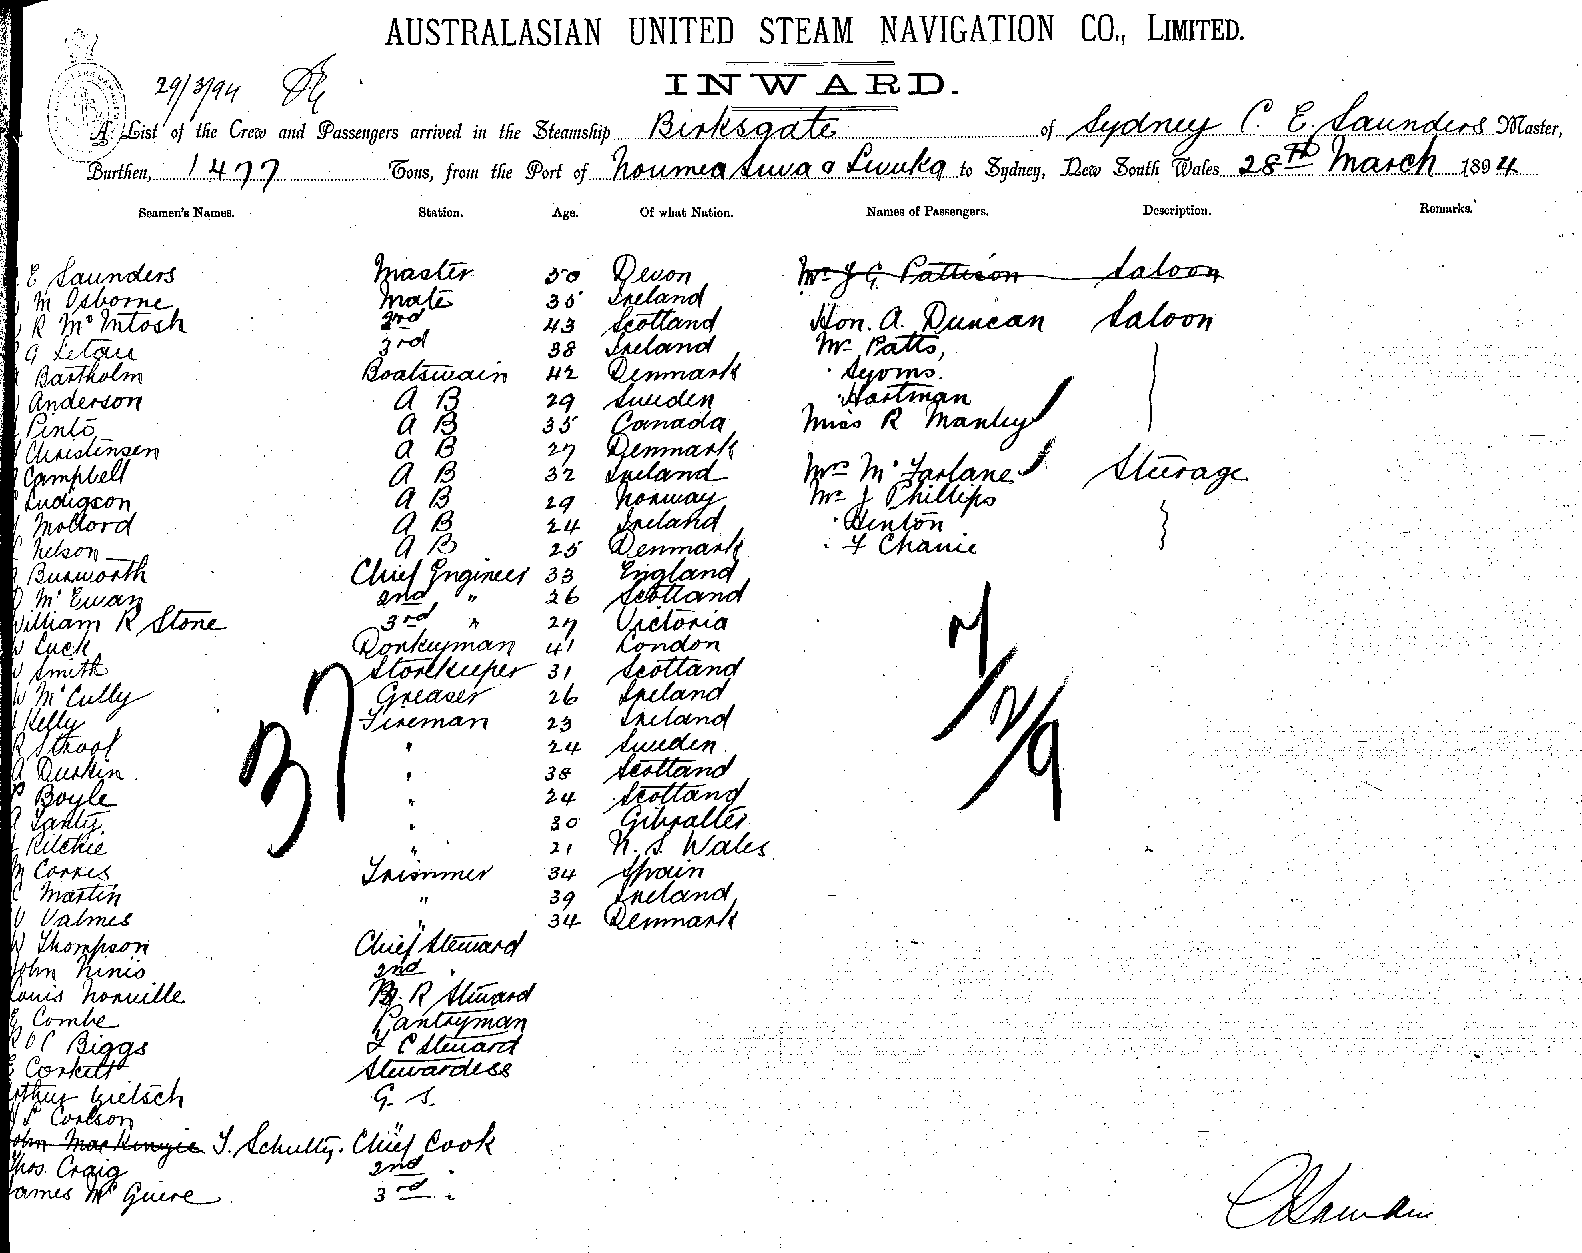 AUSTRALASIAN UNITED STEAM NAVIGATION CO., LIMITED.
INWARD.
29/3/94
A List of the Crew and Passengers arrived in the Steamship Birksgate of Sydney C. E. Saunders Master,
Burthen, 1477 Tons, from the Port of Noumea Suva & Levuka to Sydney, New South Wales 28TH March 1894
Seamen's Names. Station. Age. Of what Nation. Names of Passengers. Description. Remarks.
E Saunders Master 50 Devon Mr J G Pattison Saloon
M Osborne Mate 35 Ireland
R McIntosh 2nd 43 Scotland Hon. A. Duncan Saloon
G 3rd 38 Ireland Mr Patts,
Bartholm Boatswain 42 Denmark " Syoms.
Anderson A B 29 Sweden Hartman
Pinto A B 35 Canada Miss R Manley
Christensen A B 27 Denmark
Campbell A B 32 Ireland Mrs McFarlane Steerage
Ludigson A B 29 Norway Mr J Phillips
Mollord A B 24 Ireland " Henton
Nelson A B 25 Denmark " F Chanie
Burworth Chief Engineer 33 England
McEwan 2nd " 26 Scotland
William R Stone 3rd " 27 Victoria
Luck Donkeyman 41 London
Smith Storekeeper 31 Scotland
W McCully Greaser 26 Ireland
Kelly Fireman 23 Ireland
Stroof " 24 Sweden
Durkin. " 38 Scotland
P Boyle " 24 Scotland
Santy. " 30 Gibralter
Ritchie " 21 N. S. Wales
M Corres Trimmer 34 Spain
C Martin " 39 Ireland
Valmes " 34 Denmark
W Thompson Chief Steward
John Ninis 2nd "
Louis Norville B. R Steward
E Combe Pantryman
Biggs F C Steward
E Corkill Stewardess
Arthur Gietsch G. S.
Carlson "
John MacKenzie F. Schultz. Chief Cook
Thos. Craig 2nd "
James McGuire 3rd "
37
7/2/9